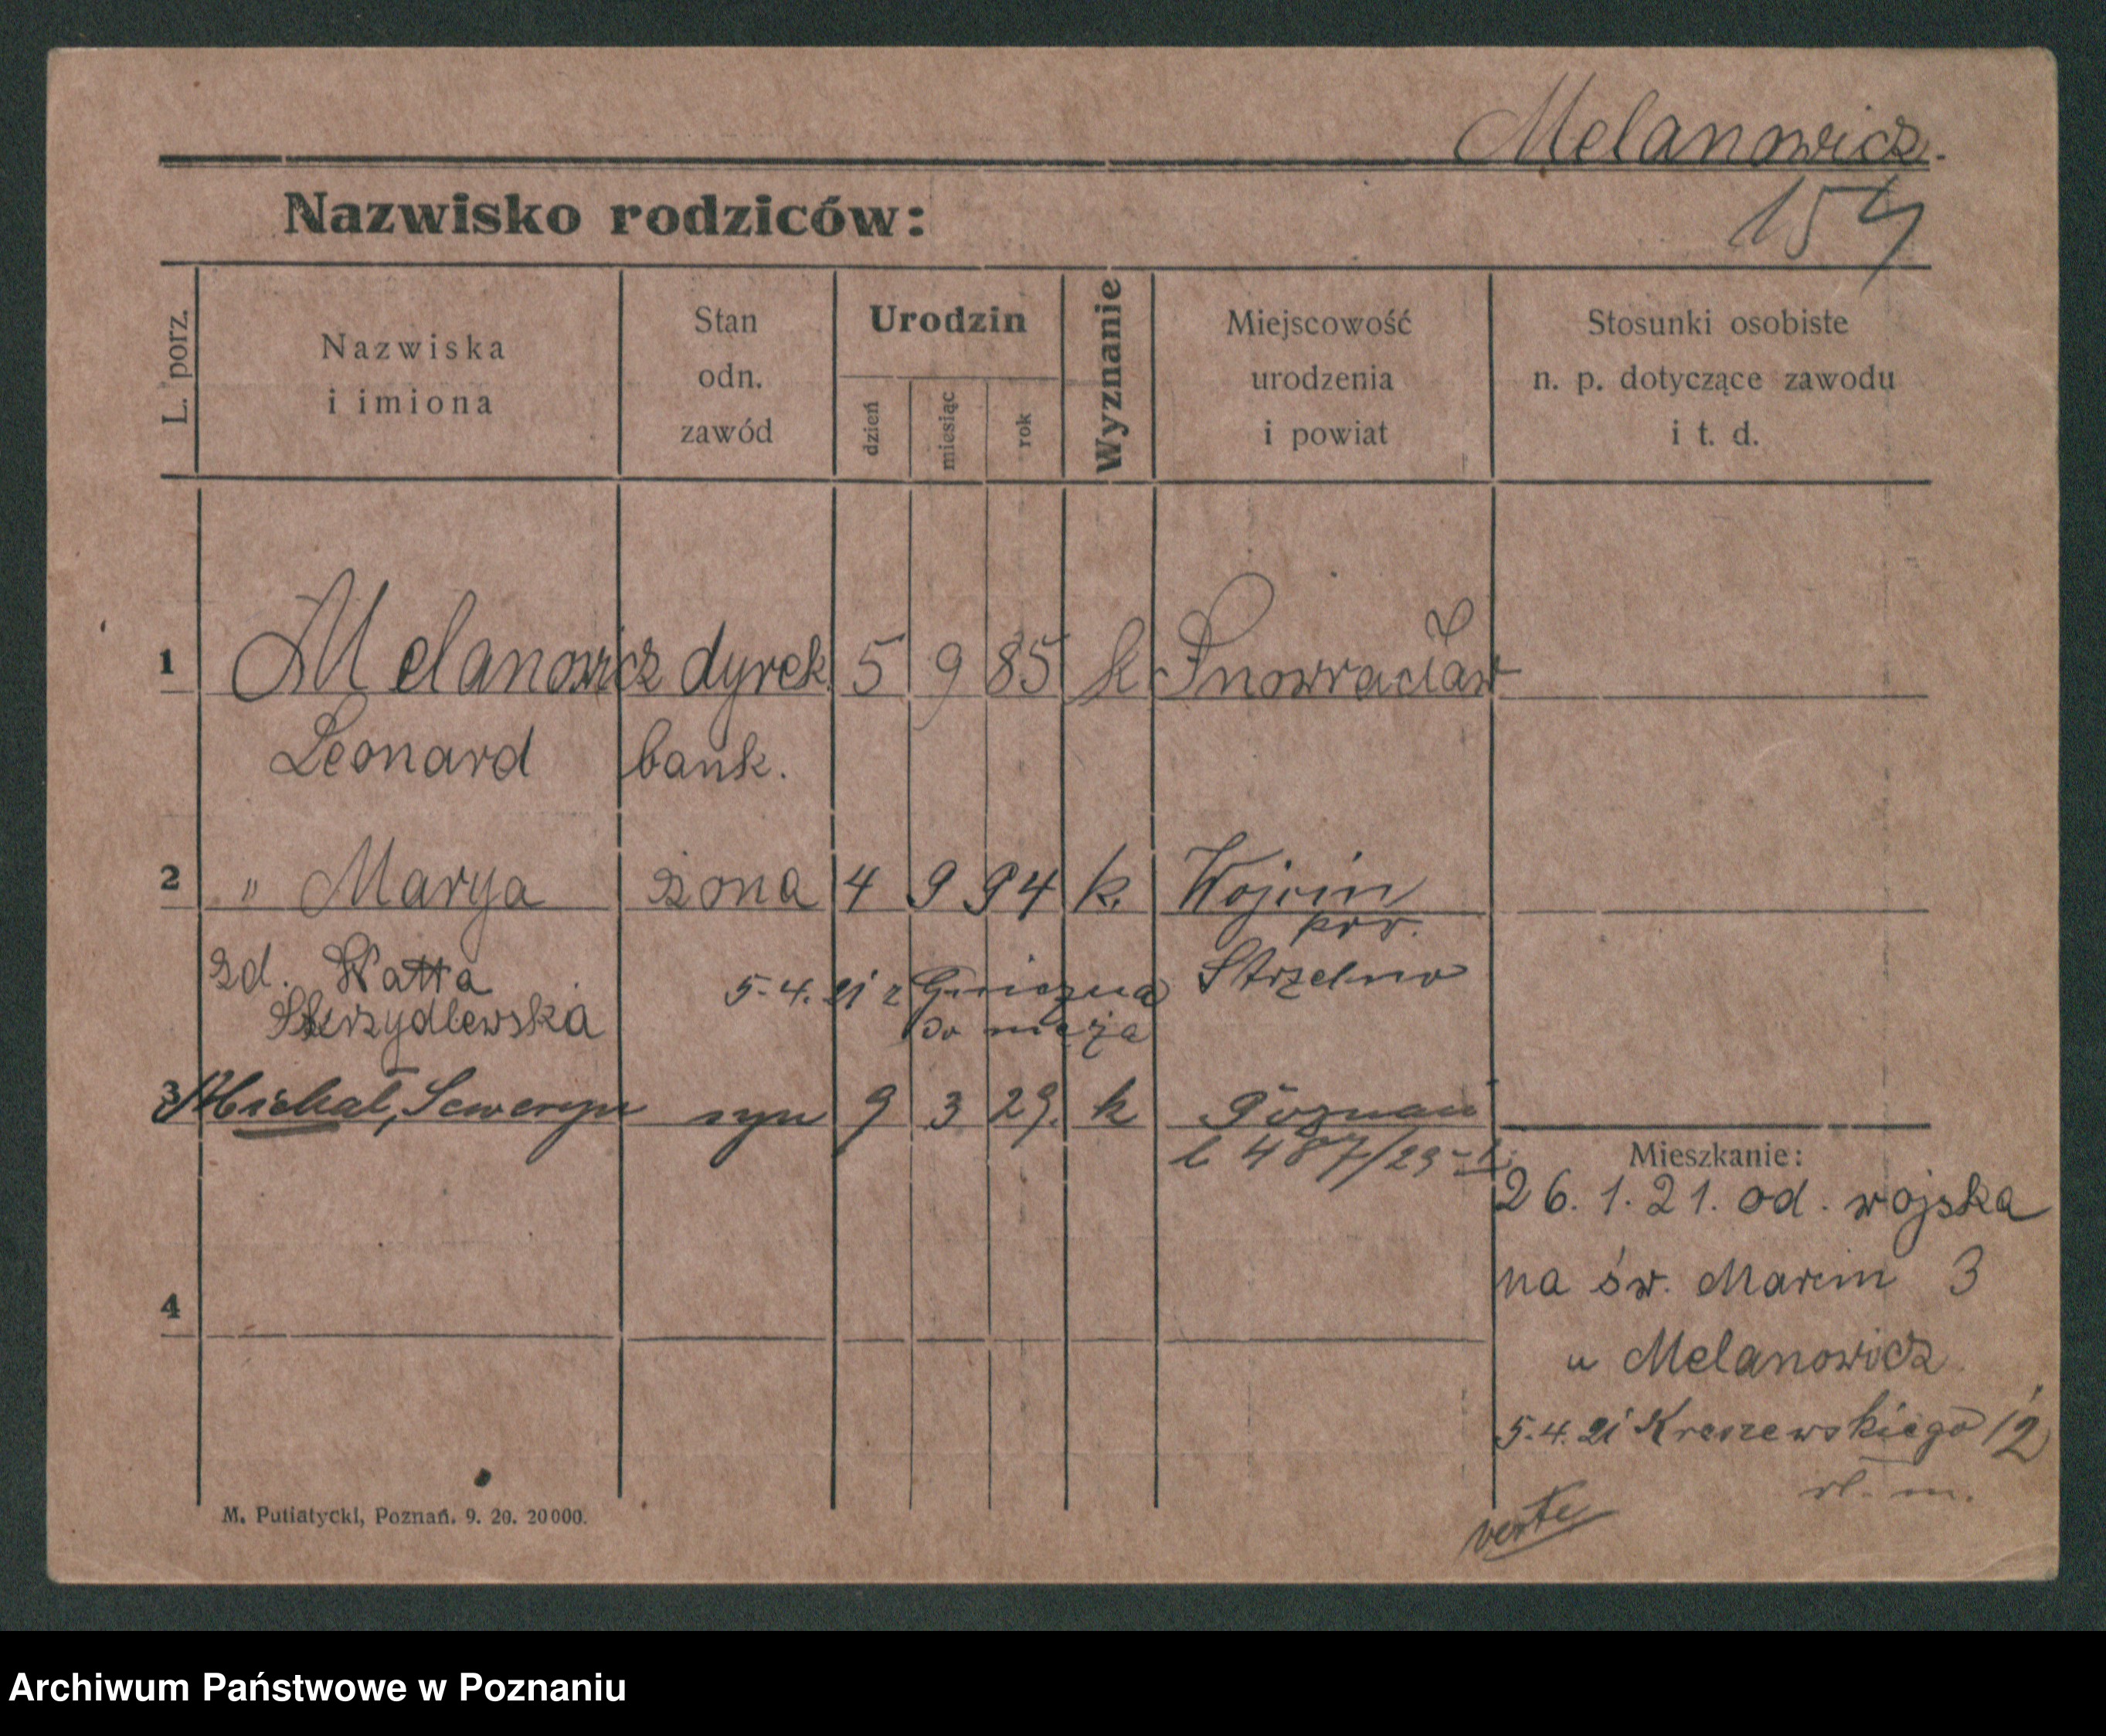 Melanowicz.
Nazwisko rodziców:
154
L. porz.
Nazwiska
i imiona
Stan
odn.
zawód
Urodzin
dzień
miesiąc
rok
Wyznanie
Miejscowość
urodzenia
i powiat
Stosunki osobiste
n. p. dotyczące zawodu
i t. d.
1 Melanowicz dyrek. 5 9 85 k Inowracław
Leonard bank.
2 " Marya żona 4 9 94 k. Wojcin
pow.
zd. Watta Strzelno
5.4.21 z Gniezna
Skrzydlewska
do męża
3 Michał, Seweryn syn 9 3 29. k Poznań
L 487/29
Mieszkanie:
26. 1. 21. od. wojska
na św. Marcin 3
u Melanowicz
5.4.21 Kraszewskiego 12
4
verte
M. Putiatycki, Poznań. 9. 20. 20000.
Archiwum Państwowe w Poznaniu